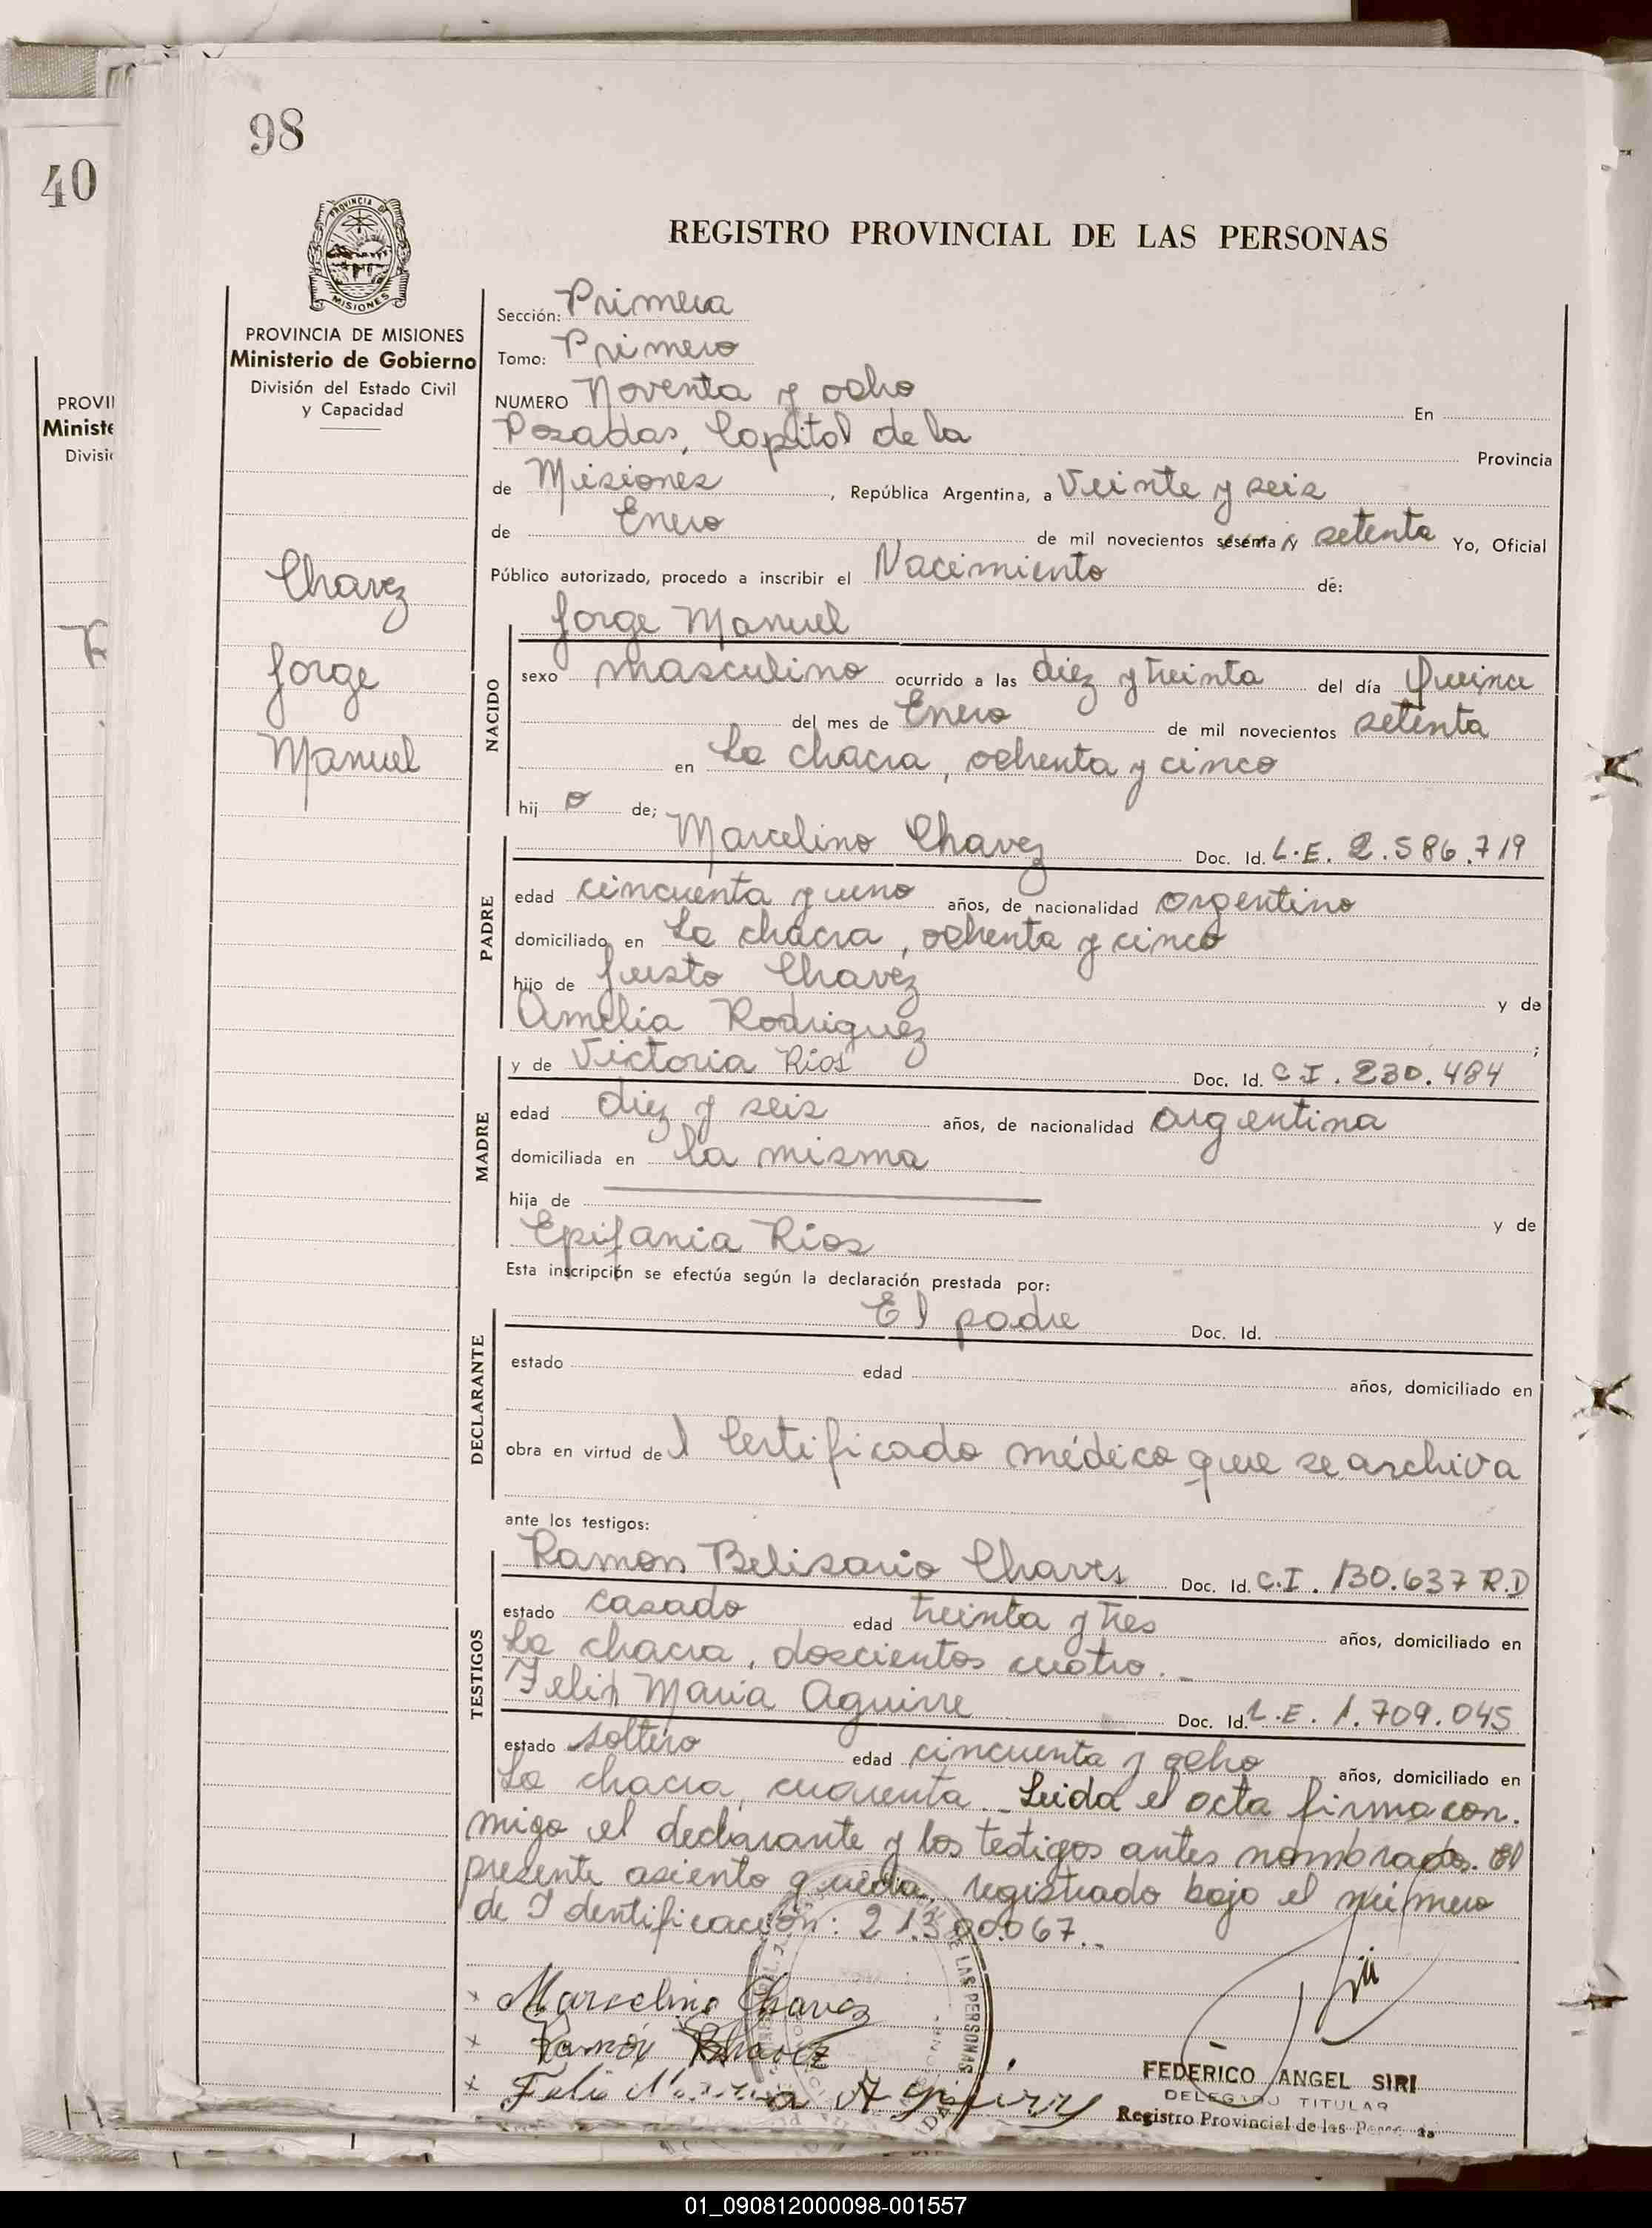 98
40
PROVINCIA DE
MISIONES
REGISTRO PROVINCIAL DE LAS PERSONAS
PROVINCIA DE MISIONES
Ministerio de Gobierno
División del Estado Civil
y Capacidad
PROVI
Ministe
Divisi
Chavez
Jorge
Manuel
Sección: Primera
Tomo: Primero
NUMERO Noventa y ocho En
Posadas, Capital de la Provincia
de Misiones, República Argentina, a Veinte y seis
de Enero de mil novecientos sesenta y setenta Yo, Oficial
Público autorizado, procedo a inscribir el Nacimiento de:
Jorge Manuel
NACIDO
sexo masculino ocurrido a las diez y treinta del día Quince
del mes de Enero de mil novecientos setenta
en La chacra, ochenta y cinco
hijo de;
Marcelino Chavez Doc. Id. L.E. 2.586.719
PADRE
edad cincuenta y uno años, de nacionalidad argentino
domiciliado en La chacra, ochenta y cinco
hijo de Justo Chavez y de
Amelia Rodriguez ;
y de Victoria Ríos Doc. Id. C.I. 230.484
MADRE
edad diez y seis años, de nacionalidad argentina
domiciliada en la misma
hija de y de
Epifania Ríos
Esta inscripción se efectúa según la declaración prestada por:
El padre Doc. Id.
DECLARANTE
estado edad años, domiciliado en
obra en virtud del Certificado médico que se archiva
ante los testigos:
Ramon Belisario Chaves Doc. Id. C.I. 130.637 R.D
TESTIGOS
estado casado edad treinta y tres años, domiciliado en
La chacra, doscientos cuatro._
Felix Maria Aguirre Doc. Id. L.E. 1.709.045
estado soltero edad cincuenta y ocho años, domiciliado en
La chacra, cuarenta._ Leida el acta firma con-
migo el declarante y los testigos antes nombrados. El
presente asiento queda registrado bajo el número
de Identificación: 21.300.067._
x Marcelino Chavez
x Ramón Chavez
x Felix Maria Aguirre
DE LAS PERSONAS
FEDERICO ANGEL SIRI
DELEGADO TITULAR
Registro Provincial de las Personas
01_090812000098-001557